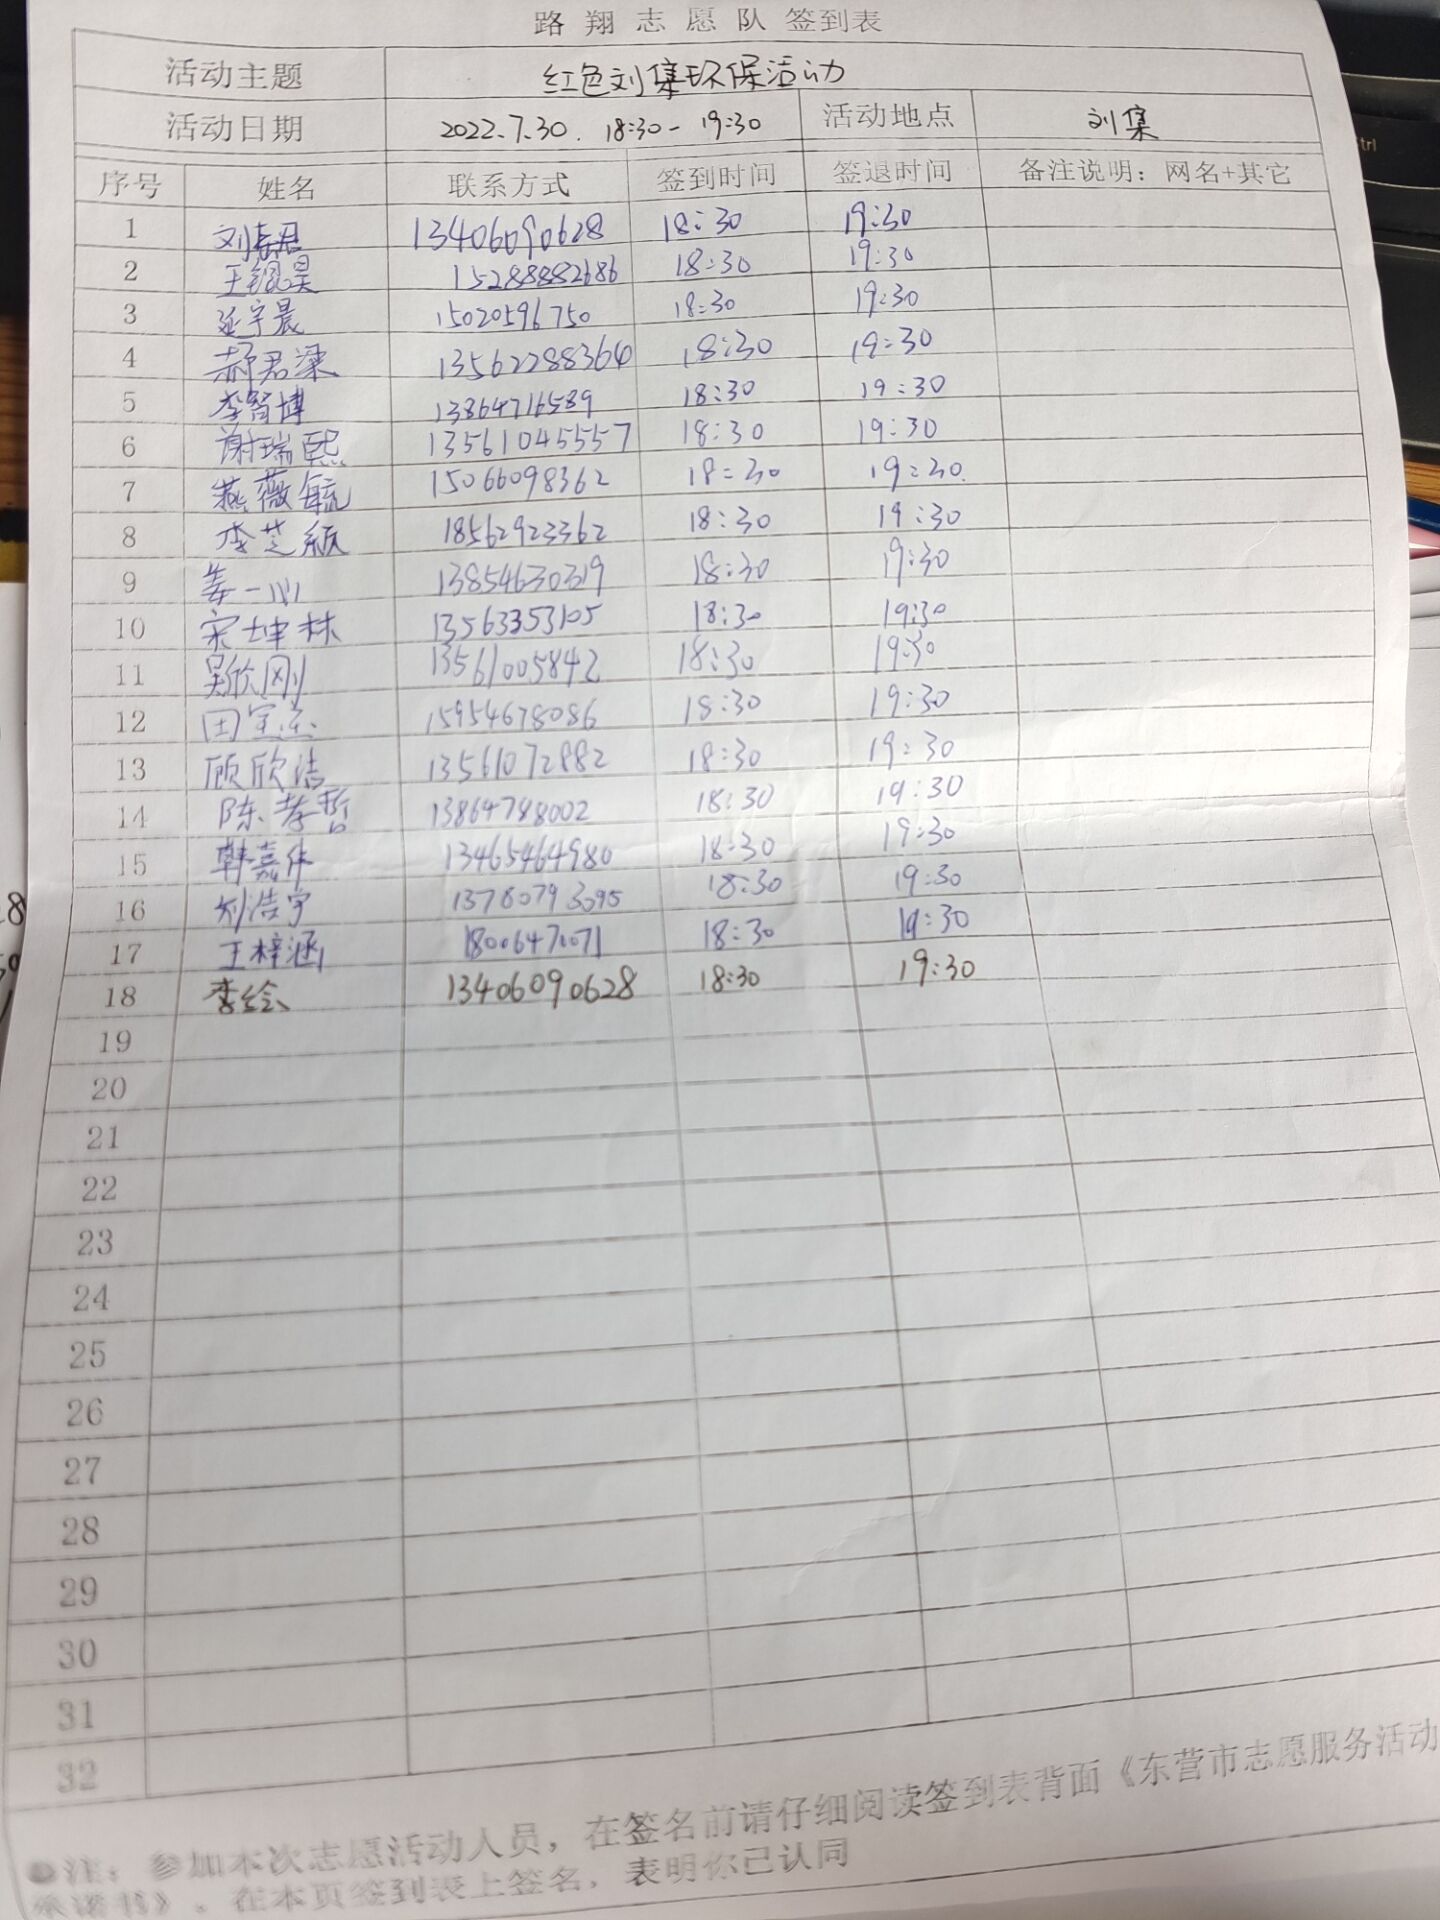 路翔志愿队签到表
活动主题 红色刘集环保活动
活动日期 2022.7.30. 18:30-19:30 活动地点 刘集
序号 姓名 联系方式 签到时间 签退时间 备注说明：网名+其它
1 刘春君 13406090628 18:30 19:30
2 王锟昊 15288882686 18:30 19:30
3 延宇晨 15020596750 18:30 19:30
4 郝君梁 13562288364 18:30 19:30
5 李智博 13864716589 18:30 19:30
6 谢瑞熙 13561045557 18:30 19:30
7 燕薇毓 15066098362 18:30 19:30
8 李芝颖 18562923362 18:30 19:30
9 姜一心 13854630319 18:30 19:30
10 宋坤林 13563353105 18:30 19:30
11 吴欣刚 13561005842 18:30 19:30
12 田 15954678086 18:30 19:30
13 顾欣洁 13561072882 18:30 19:30
14 陈孝哲 13864788002 18:30 19:30
15 韩嘉伟 13465464980 18:30 19:30
16 刘浩宇 13780793095 18:30 19:30
17 王梓涵 18006471071 18:30 19:30
18 李绘 13406090628 18:30 19:30
19
20
21
22
23
24
25
26
27
28
29
30
31
32
●注：参加本次志愿活动人员，在签名前请仔细阅读签到表背面《东营市志愿服务活动
承诺书》。在本页签到表上签名，表明你已认同